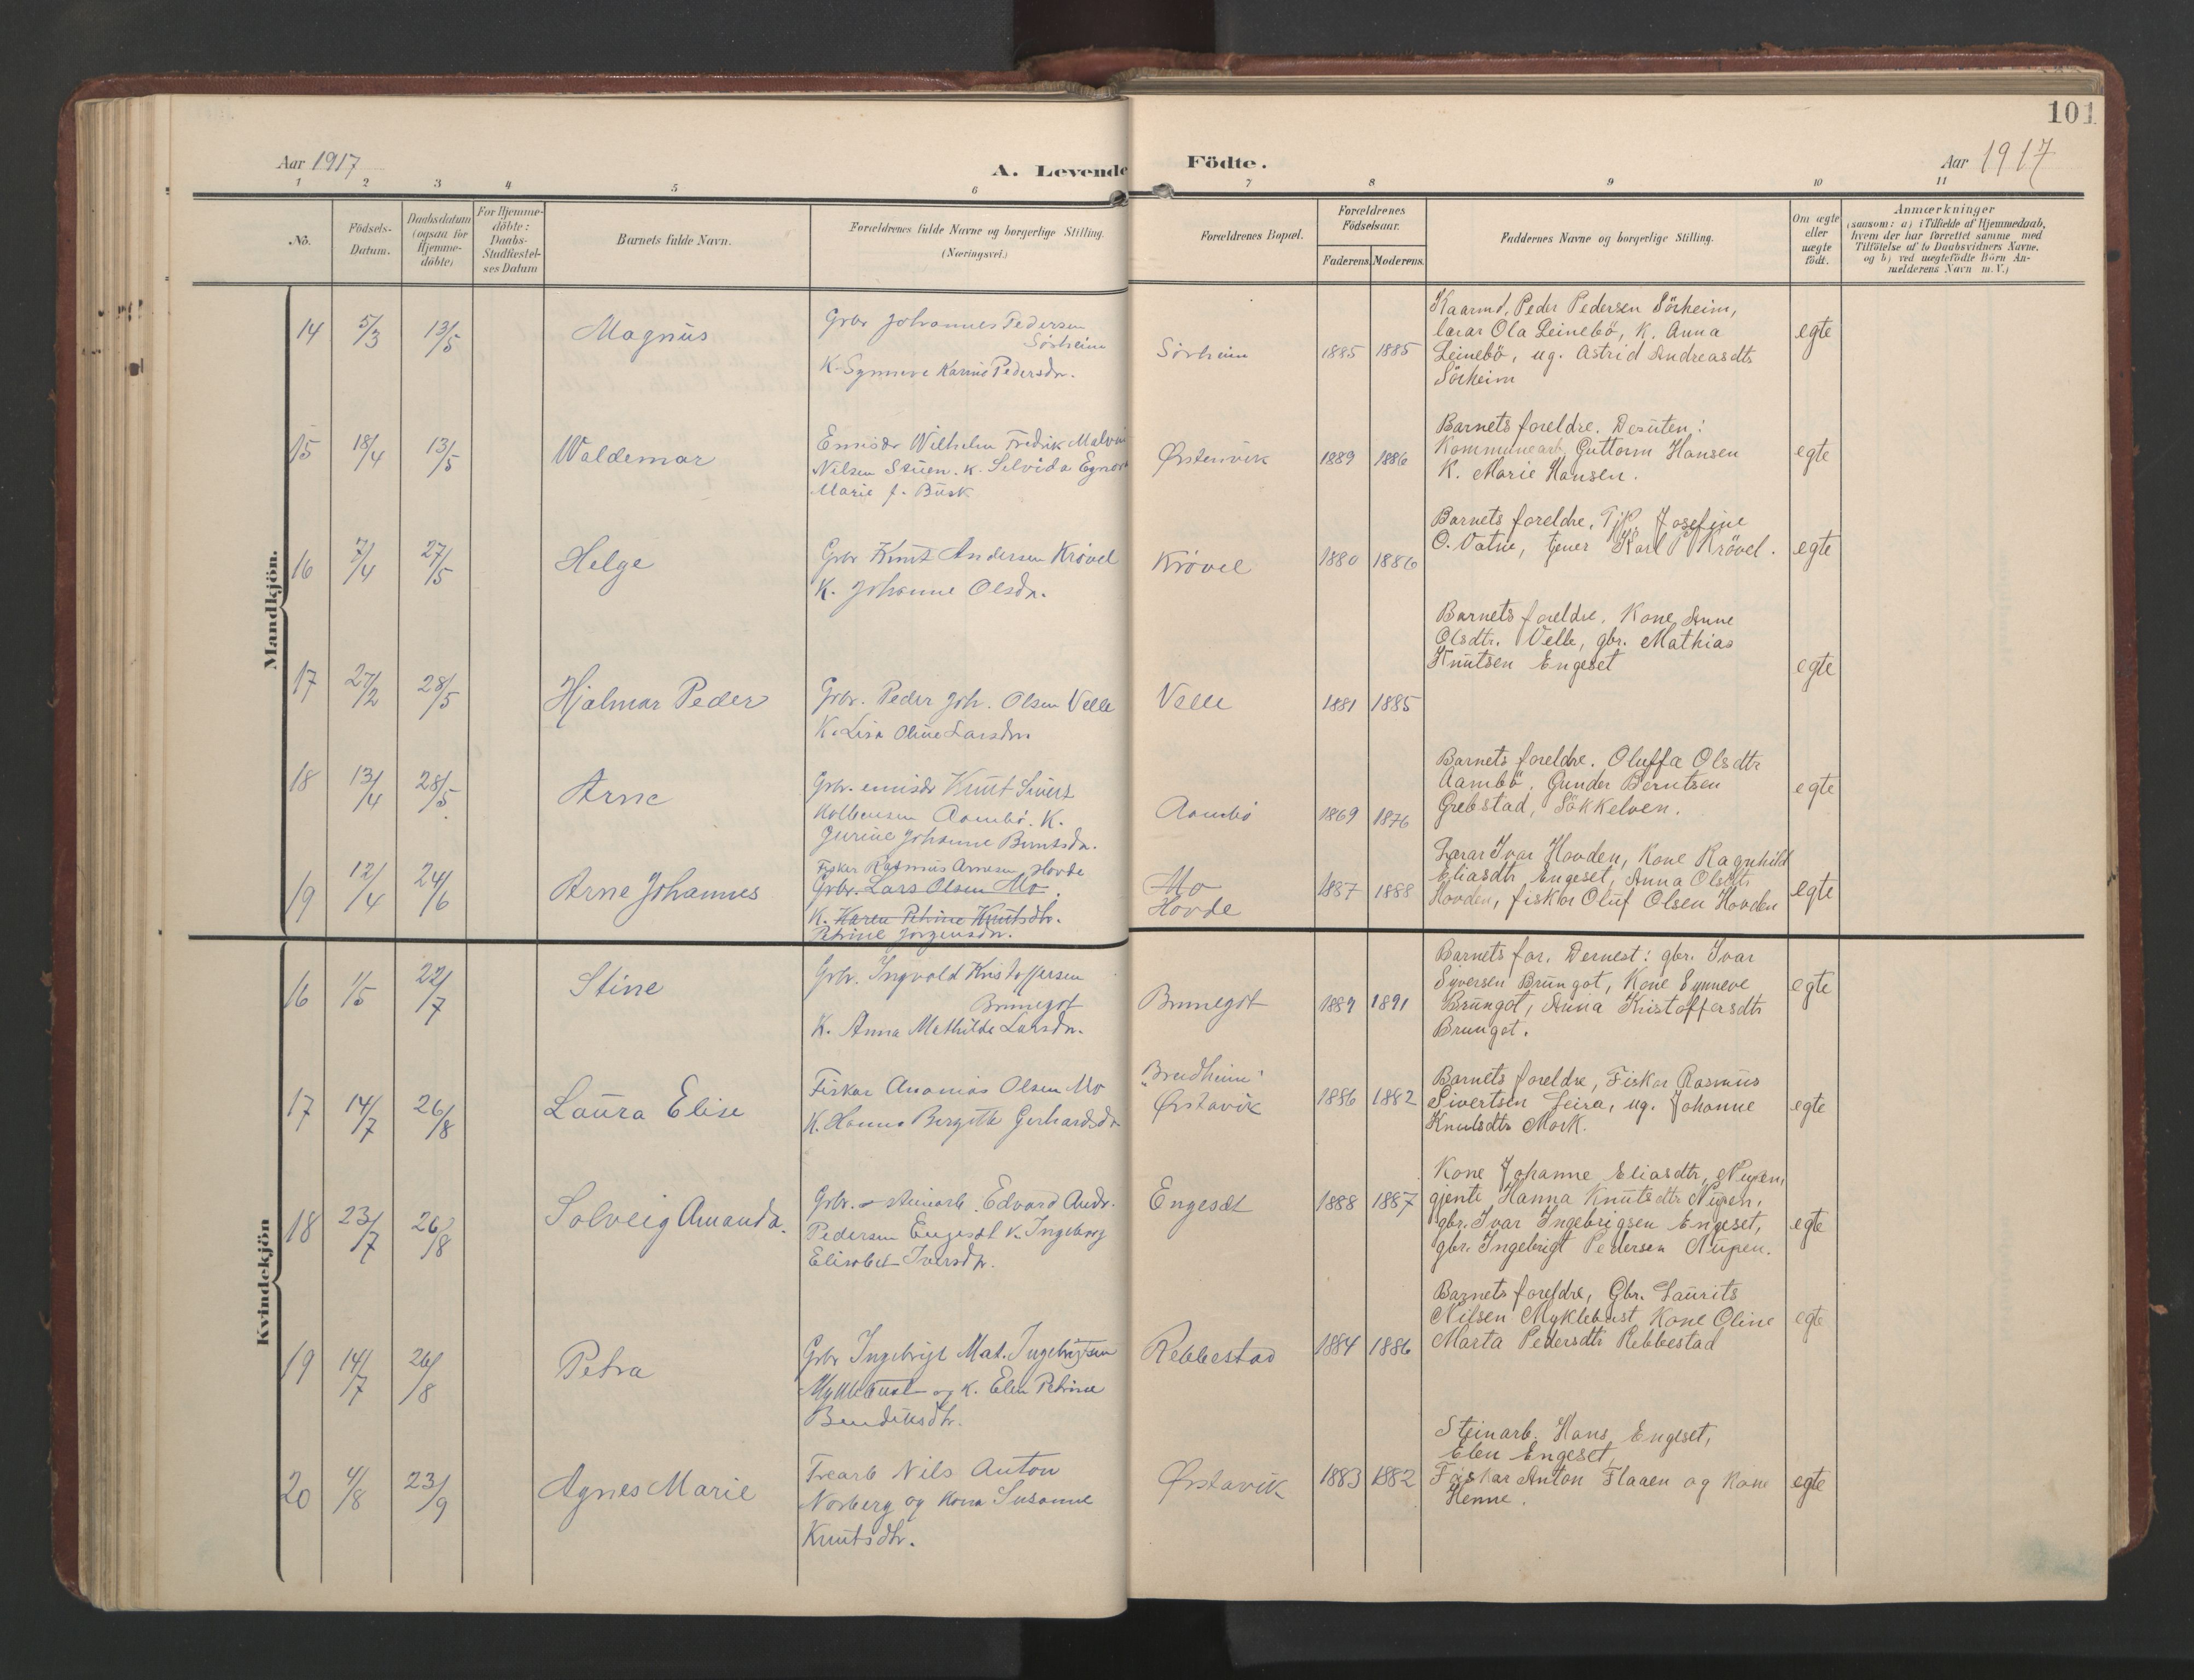 101
Aar 1917
A. Levende Födte.
Aar 1917
1 2 3 4 5 6 7 8 9 10 11
No.
Födsels-
Datum.
Daabsdatum
(ogsaa for
Hjemme-
döbte)
For Hjemme-
döbte:
Daabs-
Stadfæstel-
ses Datum
Barnets fulde Navn.
Forældrenes fulde Navne og borgerlige Stilling.
(Næringsvei.)
Forældrenes Bopæl.
Forældrenes
Födselsaar.
Faderens. Moderens.
Faddernes Navne og borgerlige Stilling.
Om ægte
eller
uægte
födt.
Anmærkninger
(saasom: a) i Tilfælde af Hjemmedaab,
hvem der har forrettet samme med
Tilföielse af to Daabsvidners Navne,
og b) ved uægtefödte Börn An-
melderens Navn m. V.)
Mandkjön.
14 5/3 13/5 Magnus
Gbr Johannes Pedersen
Sörheim
K. Synneve Karine Pedersdr.
Sörheim 1885 1885
Kaarmd. Peder Pedersen Sörheim,
lærar Ola Leinebö, K. Anna
Leinebö, ug. Astrid Andreasdtr
Sörheim
egte
15 18/4 13/5 Waldemar
Emisær Wilhelm Fredrik
Nilsen Stüen. K. Selvida
Marie f. Busk
Ørstenvik 1889 1886
Barnets foreldre. Desuten:
Kommunearb. Guttorm Hansen
K. Marie Hansen.
egte
16 7/4 27/5 Helge
Gbr Knut Andersen Krövel
K. Johanne Olsdr.
Krövel 1880 1886
Barnets foreldre, Tjp. Josefine
O. Vatne, tjener Karl P Krövel.
egte
17 27/2 28/5 Hjalmar Peder
Gbr. Peder Joh. Olsen Velle
K. Lisa Oline Larsdr.
Velle 1881 1885
Barnets foreldre. Kone Anne
Olsdtr. Velle, gbr. Mathias
Knutsen Engeset
egte
18 13/4 28/5 Arne
Gbr. emisær Knut Sivert
Kolbensen Aambö. K.
Jurine Johanne Berntsdr.
Aambö 1869 1876
Barnets foreldre. Oluffa Olsdtr
Aambö. Gunder Berntsen
Grebstad, Sökkelven.
egte
19 12/4 24/6 Arne Johannes
Fisker Rasmus Arnesen Hovde
Gbr. Lars Olsen Mo.
K. Karen Petrine Knutsdtr.
Petrine Jörgensdr.
Mo
Hovde
1887 1888
Lærar Ivar Hovden, Kone Ragnhild
Eliasdtr Engeset, Anna Olsdtr
Hovden, fiskar Oluf Olsen Hovden
egte
Kvindekjön
16 1/5 22/7 Stine
Gbr. Ingvald Kristoffersen
Brunegot
K. Anna Mathilde Larsdr.
Brunegot 1889 1891
Barnets for. Dernest: gbr. Ivar
Syversen Brungot, Kone Synneve
Brungot, Anna Kristoffersdtr
Brungot.
egte
17 14/7 26/8 Laura Elise
Fiskar Ananias Olsen Mo
K. Hanna Bergitte Gerhardsdr
"Breidheim"
Ørstavik
1886 1882
Barnets foreldre, Fiskar Rasmus
Sivertsen Leira, ug. Johanne
Knutsdtr Mork.
egte
18 23/7 26/8 Solveig Amanda.
Gbr. - steinarb. Edvard Andr.
Pedersen Engeset K. Ingeborg
Elisabet Iversdtr.
Engeset 1888 1887
Kone Johanne Eliasdtr, Nupen,
gjente Hanna Knutsdtr Nupen,
gbr. Ivar Ingebrigsen Engeset,
gbr. Ingebrigt Pedersen Nupen.
egte
19 14/7 26/8 Petra
Gbr Ingebrigt Mat. Ingebrigtsen
Myklebust og K. Elen Petrine
Bendiksdtr.
Rebbestad 1884 1886
Barnets foreldre, Gbr. Laurits
Nilsen Myklebust, Kone Oline
Marta Pedersdtr Rebbestad
egte
20 4/8 23/9 Agnes Marie
Trearb Nils Anton
Norberg og Kona Susanne
Knutsdtr.
Ørstavik 1883 1882
Steinarb. Hans Engeset,
Elen Engeset,
Fiskar Anton Flaaen og Kone
Henne.
egte